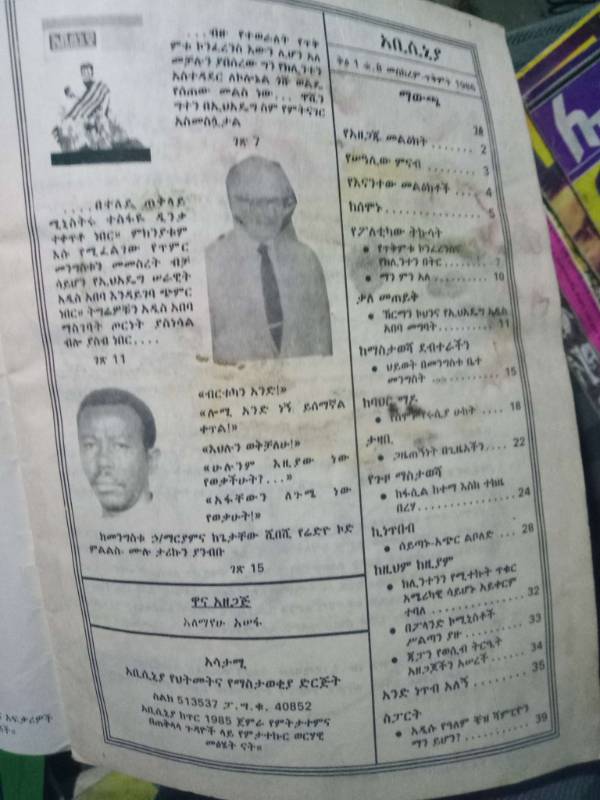 ...ብዙ የተወራለት የጥቅ
ምቱ ኮንፈረንስ እውን ሊሆን አለ
መቻሉን ያበሰረው ግን የክሊንተን
አስተዳደር ለኮሎኔል ጎሹ ወልዴ
የሰጠው መልስ ነው... ዋሺን
ግተን በኢህአዴግ ስም የምትናገር
አስመስሏታል
ገጽ 7
....በተለይ ጠቅላይ
ሚኒስትሩ ተስፋዬ ዲንቃ
ተቀጥቶ ነበር። ምክንያቱም
እሱ የሚፈልገው የጥምር
መንግስቱን መመስረት ብቻ
ሳይሆን የኢህአዴግ ሠራዊት
አዲስ አበባ እንዳይገባ ጭምር
ነበር። ትግሬዎቹን አዲስ አበባ
ማስገባት ጦርነት ያስነሳል
ብሎ ያስብ ነበር....
ገጽ 11
«ብርቱካን አንድ!»
«ሎሚ አንድ ነኝ ይሰማኛል
ቀጥል!»
«እህሉን ወቅቻለሁ!»
«ሁሉንም እዚያው ነው
የወቃችሁት?...»
«አፋቸውን ለጉሜ ነው
የወቃሁት!»
ከመንግስቱ ኃ/ማርያምና ከጌታቸው ሺበሺ የሬድዮ ኮድ
ምልልስ ሙሉ ታሪኩን ያንብቡ
ገጽ 15
ዋና አዘጋጅ
አለማየሁ አሠፋ
አሳታሚ
አቢሲኒያ የህትመትና የማስታወቂያ ድርጅት
ስልክ 513537 ፖ.ሣ.ቁ. 40852
አቢሲኒያ ከጥር 1985 ጀምራ የምትታተምና
በጠቅላላ ጉዳዮች ላይ የምታተኩር ወርሃዊ
መፅሄት ናት።
አቢሲኒያ
ቅፅ 1 ቁ.8 መስከረም-ጥቅምት 1986
ማውጫ
ገጽ
የአዘጋጁ መልዕክት ....... 2
የሠዓሊው ምናብ ....... 3
የእናንተው መልዕክቶች ..... 4
ከሰሞኑ ............. 5
የፖለቲካው ትኩሳት
• የጥቅምቱ ኮንፈረንስና
የክሊንተን በትር........ 7
• ማን ምን አለ .......... 10
ቃለ መጠይቅ
• ኸርማን ኮህንና የኢህአዴግ አዲስ
አበባ መግባት........ 11
ከማስታወሻ ደብተራችን
• ህይወት በመንግስቱ ቤተ
መንግስት ........... 15
ከባህር ማዶ
ሁከት .... 18
ታዛቢ
• ጋዜጠኝነት በጊዜአችን.... 22
የጉዞ ማስታወሻ
• ከፋሲል ከተማ እስከ ተከዜ
በረሃ............... 24
ኪነጥበብ
• ሰይጣኑ-አጭር ልቦለድ ... 28
ከዚህም ከዚያም
• ክሊንተንን የሚተኩት ጥቁር
አሜሪካዊ ሳይሆኑ አይቀርም
ተባለ ............... 32
• በፖላንድ ኮሚኒስቶች
ሥልጣን ያዙ .......... 33
• ጃፓን የወሲብ ትርዒት
አዘጋጆችን አሠረች ...... 34
አንድ ነጥብ አለኝ ........ 35
ስፖርት
• አዲሱ የዓለም ቼዝ ሻምፒዮን
ማን ይሆን? ........... 39